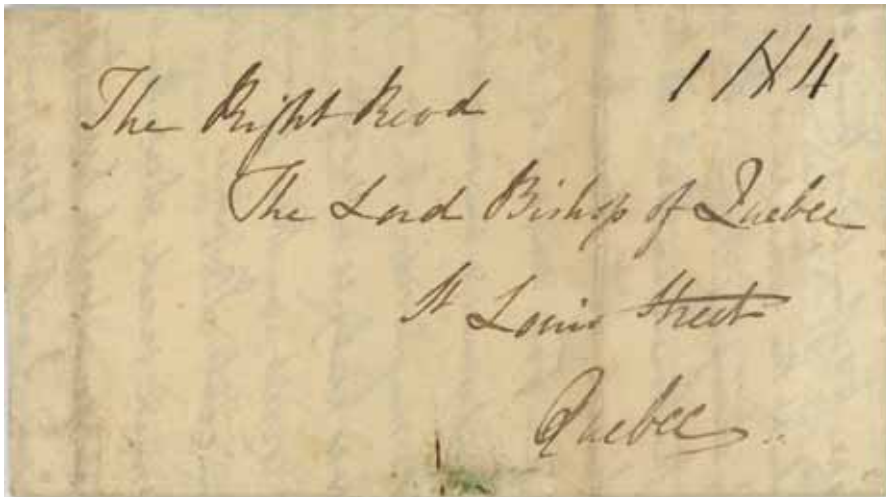 The Right Revd
The Lord Bishop of Quebec
St Louis Street
Quebec